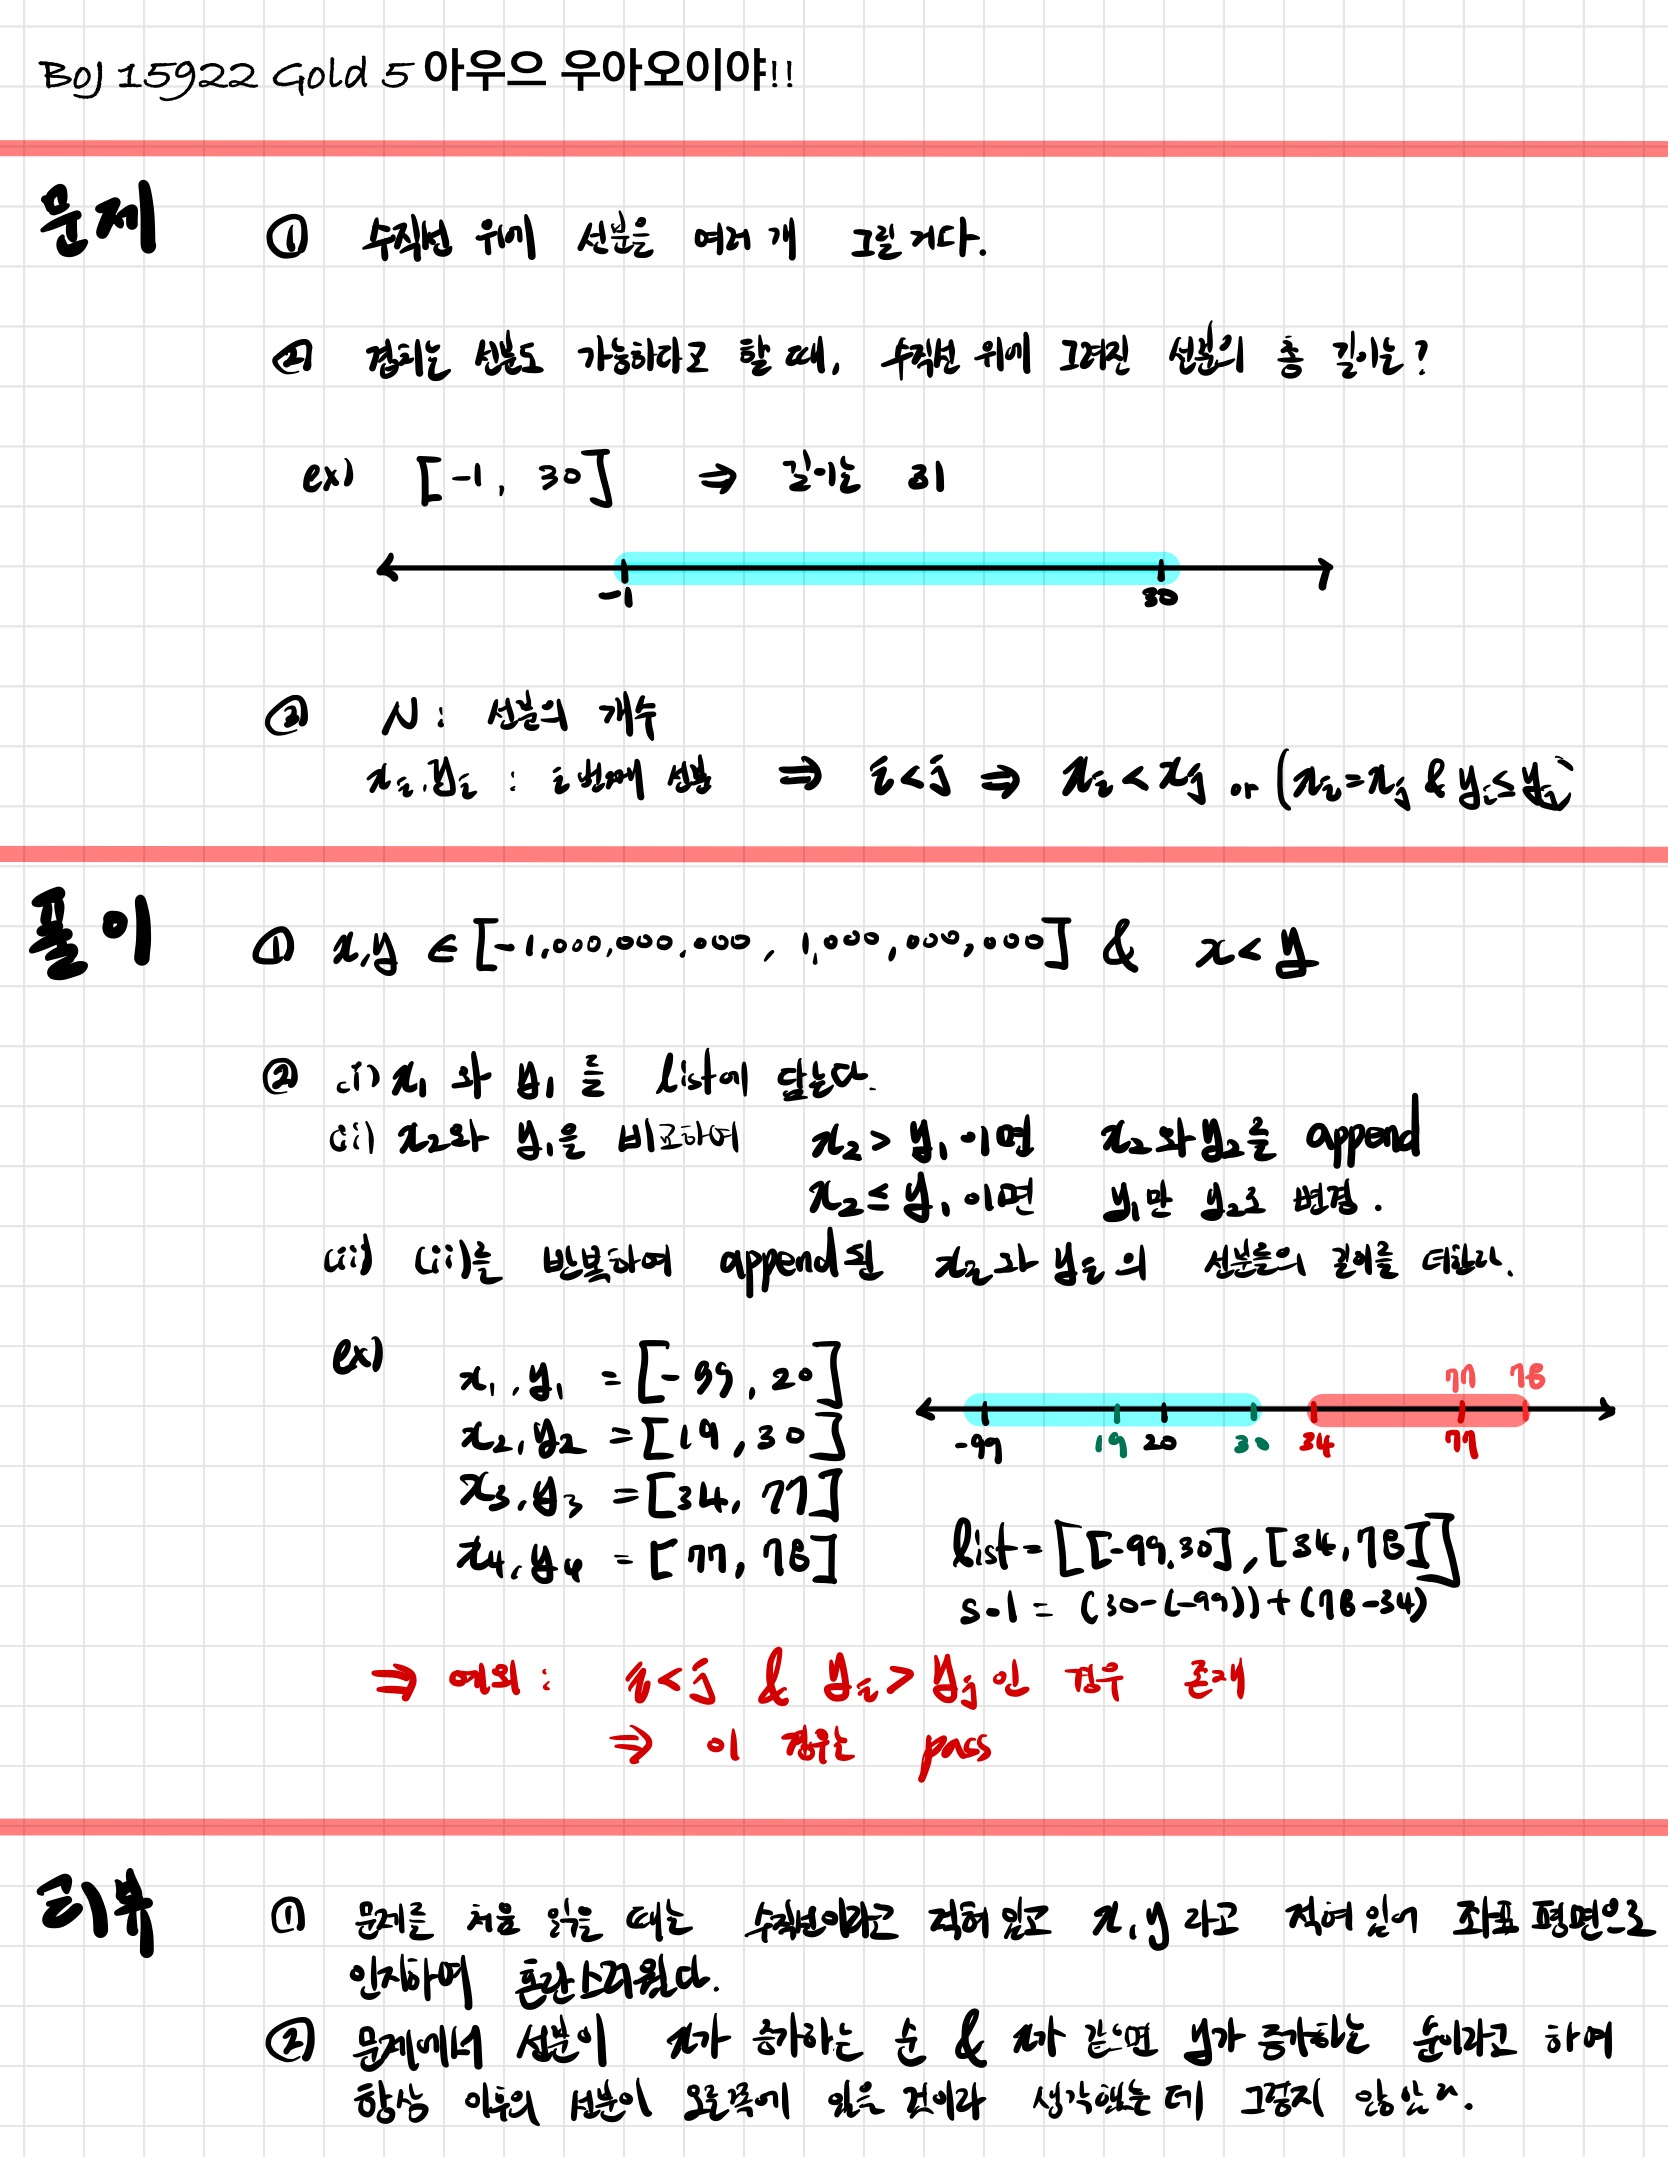 BOJ 15922 Gold 5 아우으 우아오이야!!
문제
① 수직선 위에 선분을 여러 개 그릴 거다.
② 겹치는 선분도 가능하다고 할 때, 수직선 위에 그려진 선분의 총 길이는?
ex) [-1, 30] ⇒ 길이는 31
-1 30
③ N : 선분의 개수
xᵢ, yᵢ : i 번째 선분 ⇒ i < j ⇒ xᵢ < xⱼ or (xᵢ = xⱼ & yᵢ ≤ yⱼ)
풀이
① x, y ∈ [-1,000,000,000, 1,000,000,000] & x < y
② (i) x₁ 와 y₁ 를 list에 담는다.
(ii) x₂와 y₁을 비교하여 x₂ > y₁ 이면 x₂와 y₂를 append
x₂ ≤ y₁ 이면 y₁만 y₂로 변경.
(iii) (ii)를 반복하여 append된 xᵢ와 yᵢ의 선분들의 길이를 더한다.
ex)
x₁, y₁ = [-99, 20]
x₂, y₂ = [19, 30]
x₃, y₃ = [34, 77]
x₄, y₄ = [77, 78]
77 78
-99 19 20 30 34 77
list = [[-99, 30], [34, 78]]
sol = (30-(-99)) + (78-34)
⇒ 예외 : i < j & yᵢ > yⱼ 인 경우 존재
⇒ 이 경우는 pass
리뷰
① 문제를 처음 읽을 때는 수직선이라고 적혀 있고 x, y 라고 적혀 있어 좌표 평면으로
인지하여 혼란스러웠다.
② 문제에서 선분이 x가 증가하는 순 & x가 같으면 y가 증가하는 순이라고 하여
항상 이후의 선분이 오른쪽에 있을 것이라 생각했는데 그렇지 않았다.